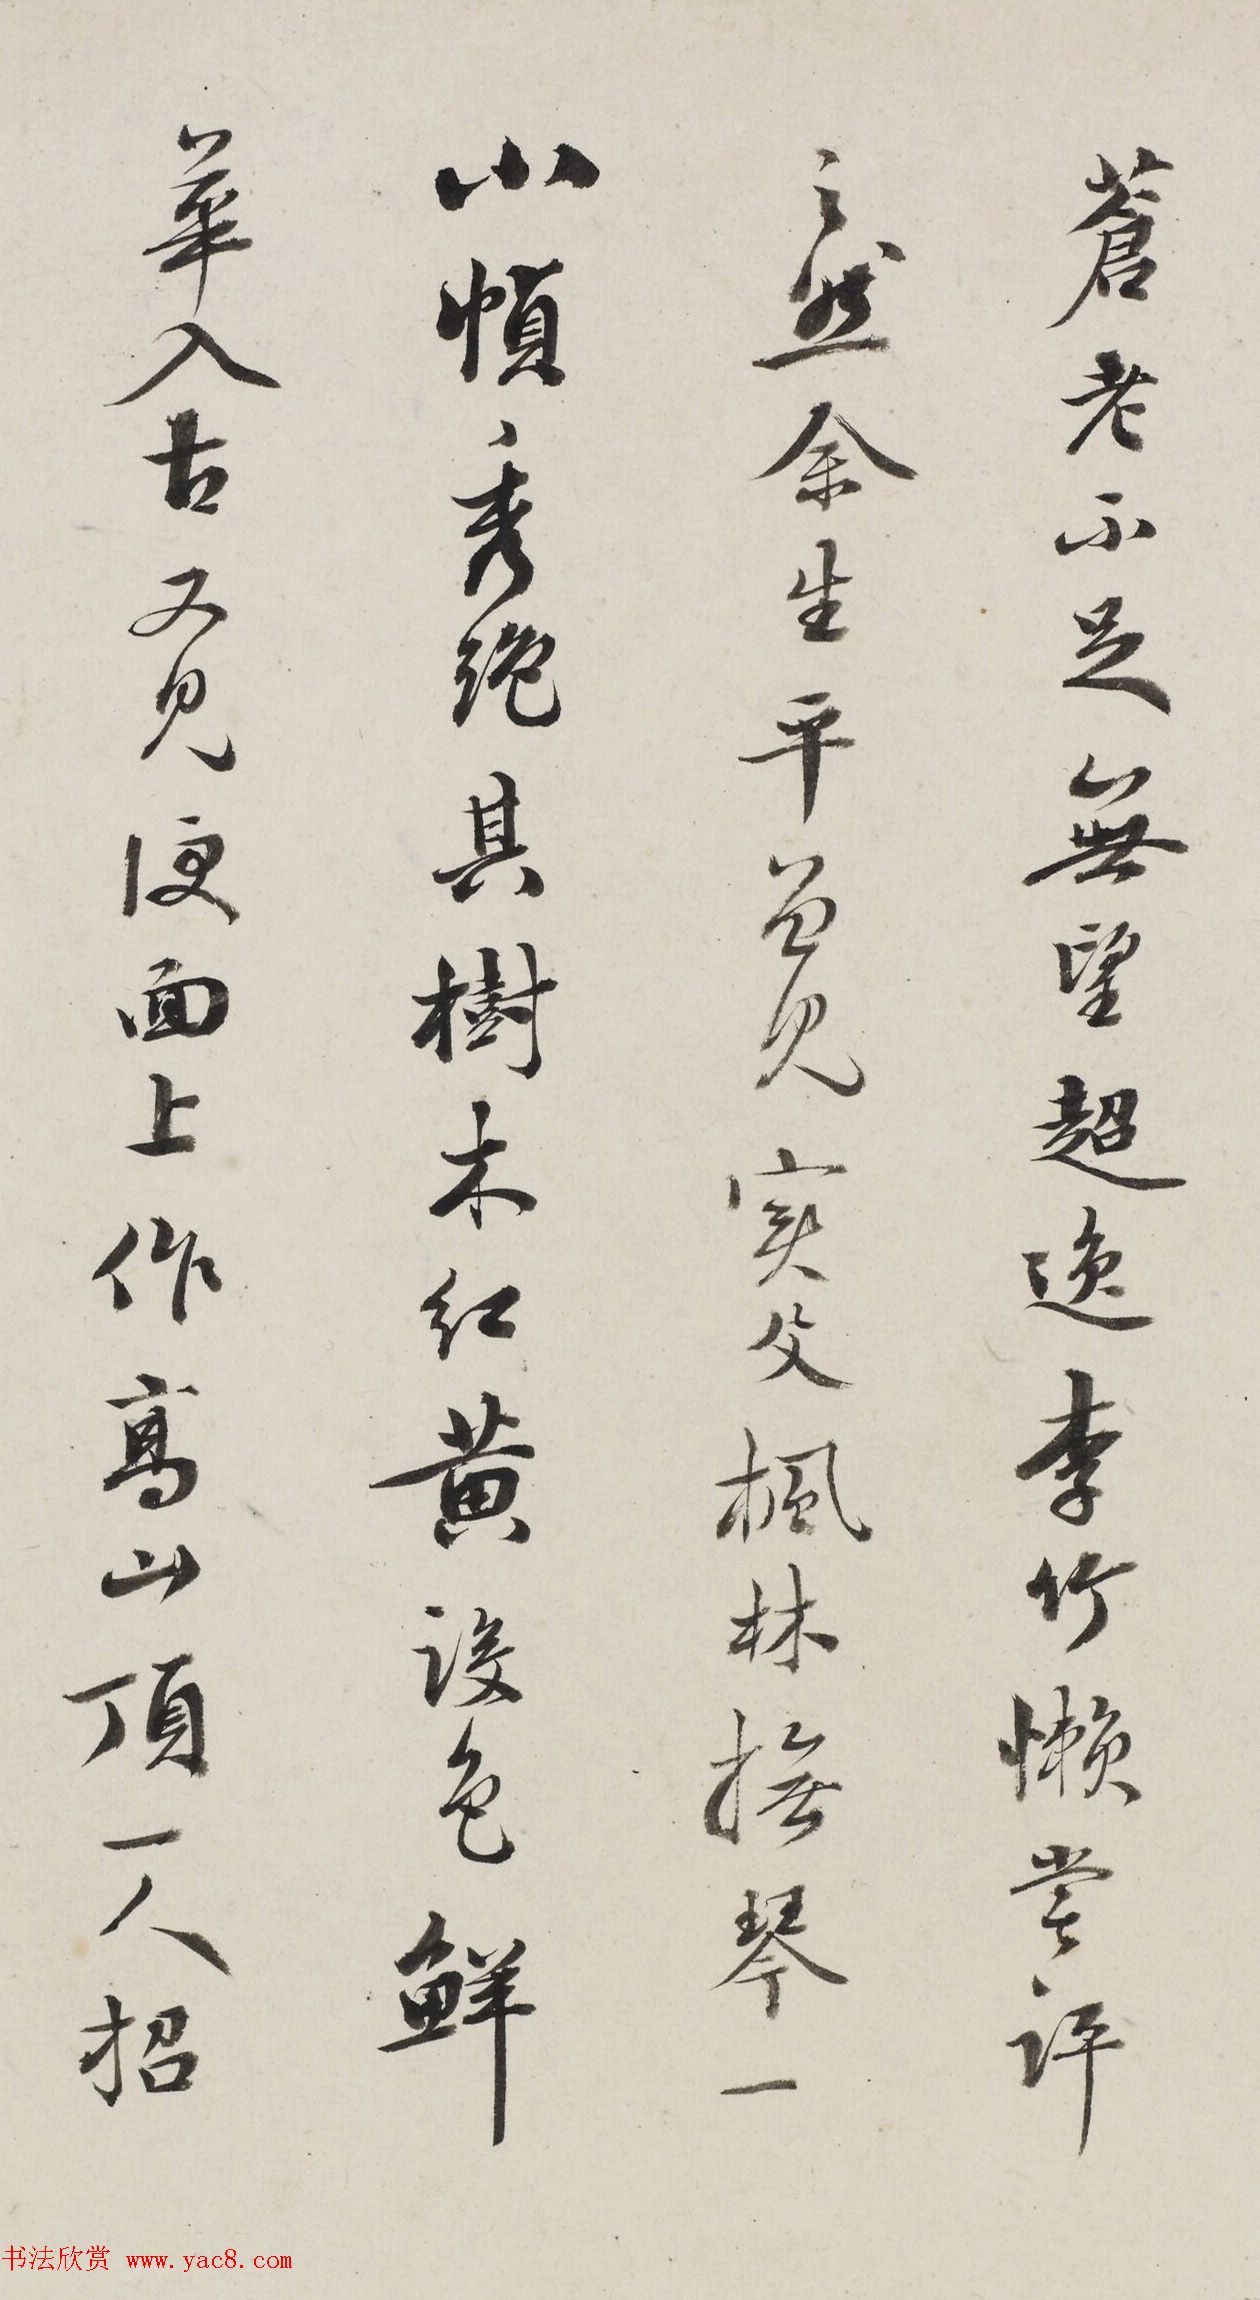 蒼老不足無望超逸李竹懶嘗評
之然余生平曾見實父楓林撫琴一
小幀秀絶其樹木紅黄設色鮮
華入古又見便面上作高山頂一人招
书法欣赏 www.yac8.com